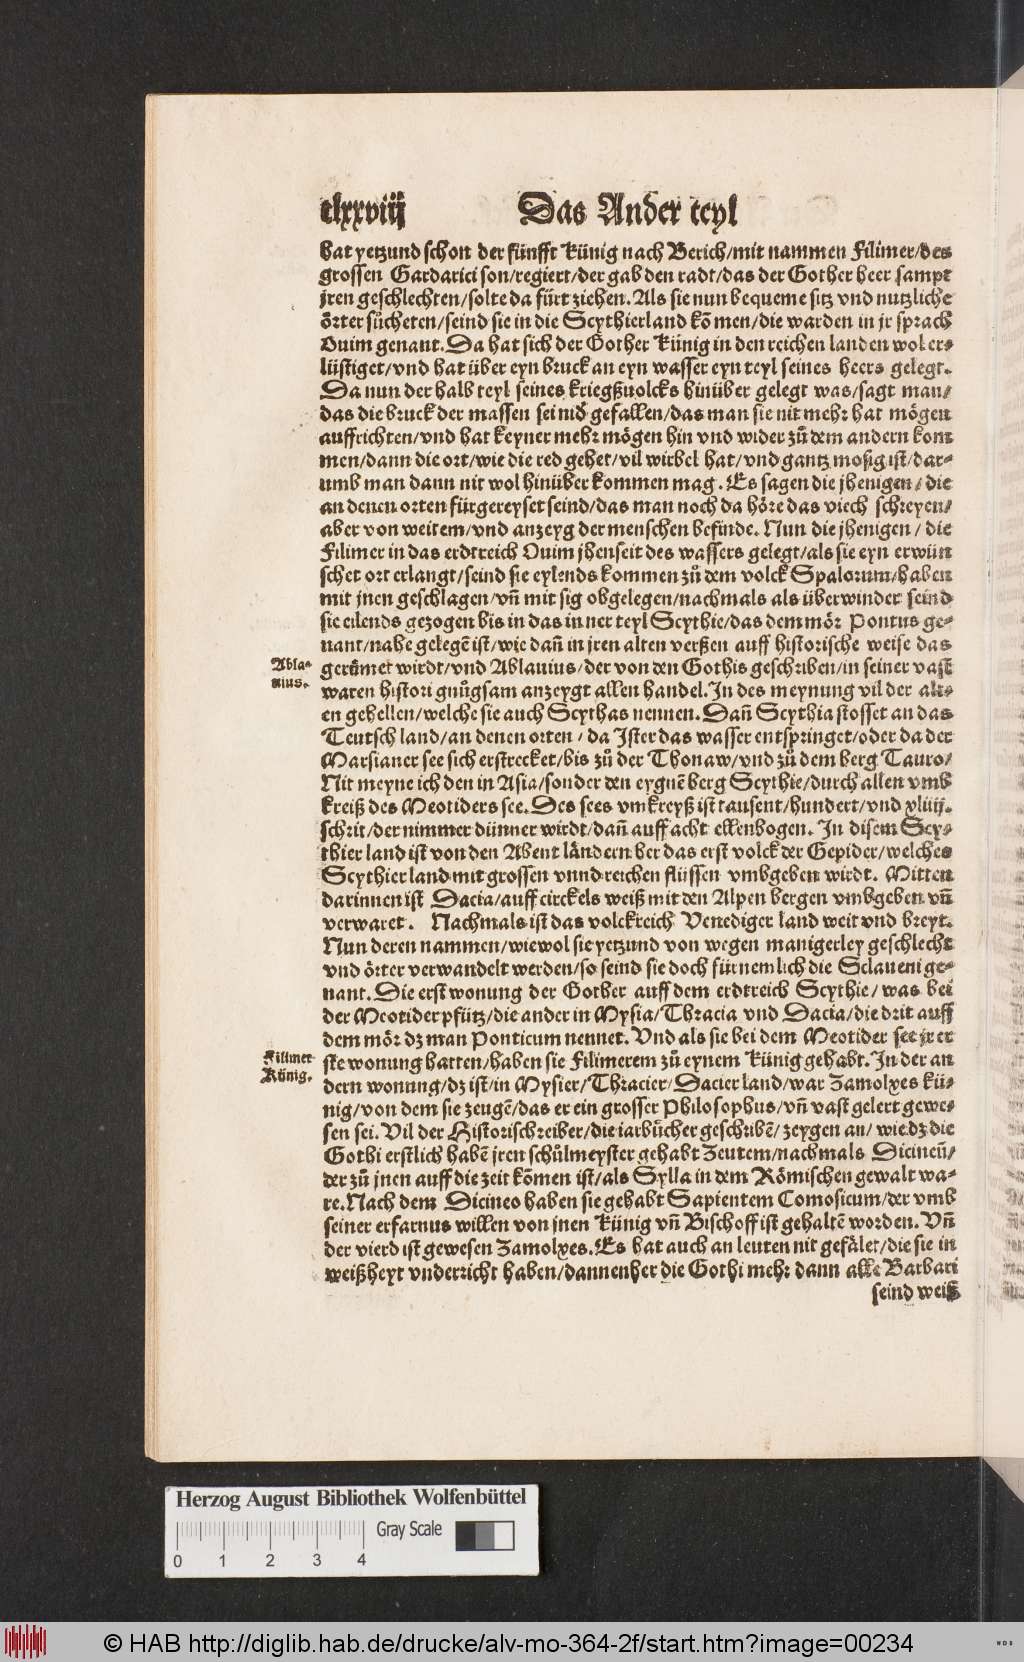 clxxviij Das Ander teyl
hat yetzund schon der fünfft Künig nach Berich/mit nammen Filimer/des
grossen Gardarici son/regiert/der gab den radt/das der Gother heer sampt
jren geschlechten/solte da fürt ziehen. Als sie nun bequeme sitz vnd nutzliche
örter sůcheten/seind sie in die Scythierland kõmen/die warden in jr sprach
Ouim genant. Da hat sich der Gother Künig in den reichen landen wol er-
lüstiget/vnd hat über eyn bruck an eyn wasser eyn teyl seines heers gelegt.
Da nun der halb teyl seines kriegßuolcks hinüber gelegt was/sagt man/
das die bruck der massen sei nid̃ gefallen/das man sie nit mehr hat mögen
auffrichten/vnd hat keyner mehr mögen hin vnd wider zů dem andern kom
men/dann die ort/wie die red gehet/vil wirbel hat/vnd gantz mosig ist/dar-
umb man dann nit wol hinüber kommen mag. Es sagen die jhenigen/die
an denen orten fürgereyset seind/das man noch da höre das viech schreyen/
aber von weitem/vnd anzeyg der menschen befinde. Nun die jhenigen/die
Filimer in das erdtreich Ouim jhenseit des wassers gelegt/als sie eyn erwün
schet ort erlangt/seind sie eylends kommen zů dem volck Spalorum/haben
mit jnen geschlagen/vñ mit sig obgelegen/nachmals als überwinder seind
sie eilends gezogen bis in das inner teyl Scythie/das dem mör Pontus ge-
nant/nahe gelegẽ ist/wie dañ in jren alten verßen auff historische weise das
Abla-
uius.
gerümet wirdt/vnd Ablauius/der von den Gothis geschriben/in seiner vast
waren histori gnůgsam anzeygt allen handel. In des meynung vil der alt-
en gehellen/welche sie auch Scythas nennen. Dañ Scythia stosset an das
Teutsch land/an denen orten/da Ister das wasser entspringet/oder da der
Marsianer see sich erstrecket/bis zů der Thonaw/vnd zů dem berg Tauro/
Nit meyne ich den in Asia/sonder den eygnẽ berg Scythie/durch allen vmb
kreiß des Meotiders see. Des sees vmkreyß ist tausent/hundert/vnd xliiij.
schrit/der nimmer dünner wirdt/dañ auff acht ellenbogen. In disem Scy-
thier land ist von den Abent ländern her das erst volck der Gepider/welches
Scythier land mit grossen vnnd reichen flüssen vmbgeben wirdt. Mitten
darinnen ist Dacia/auff circkels weiß mit den Alpen bergen vmbgeben vñ
verwaret. Nachmals ist das volckreich Venediger land weit vnd breyt.
Nun deren nammen/wiewol sie yetzund von wegen manigerley geschlecht
vnd örter verwandelt werden/so seind sie doch fürnemlich die Sclaueni ge-
nant. Die erst wonung der Gother auff dem erdtreich Scythie/was bei
der Meotider pfütz/die ander in Mysia/Thracia vnd Dacia/die drit auff
dem mör dz man Ponticum nennet. Vnd als sie bei dem Meotider see jr er
Filimer
Künig.
ste wonung hatten/haben sie Filimerem zů eynem Künig gehabt. In der an
dern wonung/dz ist/in Mysier/Thracier/Dacier land/war Zamolxes kü-
nig/von dem sie zeugẽ/das er ein grosser Philosophus/vñ vast gelert gewe-
sen sei. Vil der Historischreiber/die iarbücher geschribẽ/zeygen an/wie dz die
Gothi erstlich habẽ jren schůlmeyster gehabt Zeutem/nachmals Dicineũ/
der zů jnen auff die zeit kõmen ist/als Sylla in dem Römischen gewalt wa-
re. Nach dem Dicineo haben sie gehabt Sapientem Comosicum/der vmb
seiner erfarnus willen von jnen Künig vñ Bischoff ist gehaltẽ worden. Vñ
der vierd ist gewesen Zamolxes. Es hat auch an leuten nit gefälet/die sie in
weißheyt vnderricht haben/dannenher die Gothi mehr dann alle Barbari
seind weiß
Herzog August Bibliothek Wolfenbüttel
Gray Scale
0 1 2 3 4
© HAB http://diglib.hab.de/drucke/alv-mo-364-2f/start.htm?image=00234